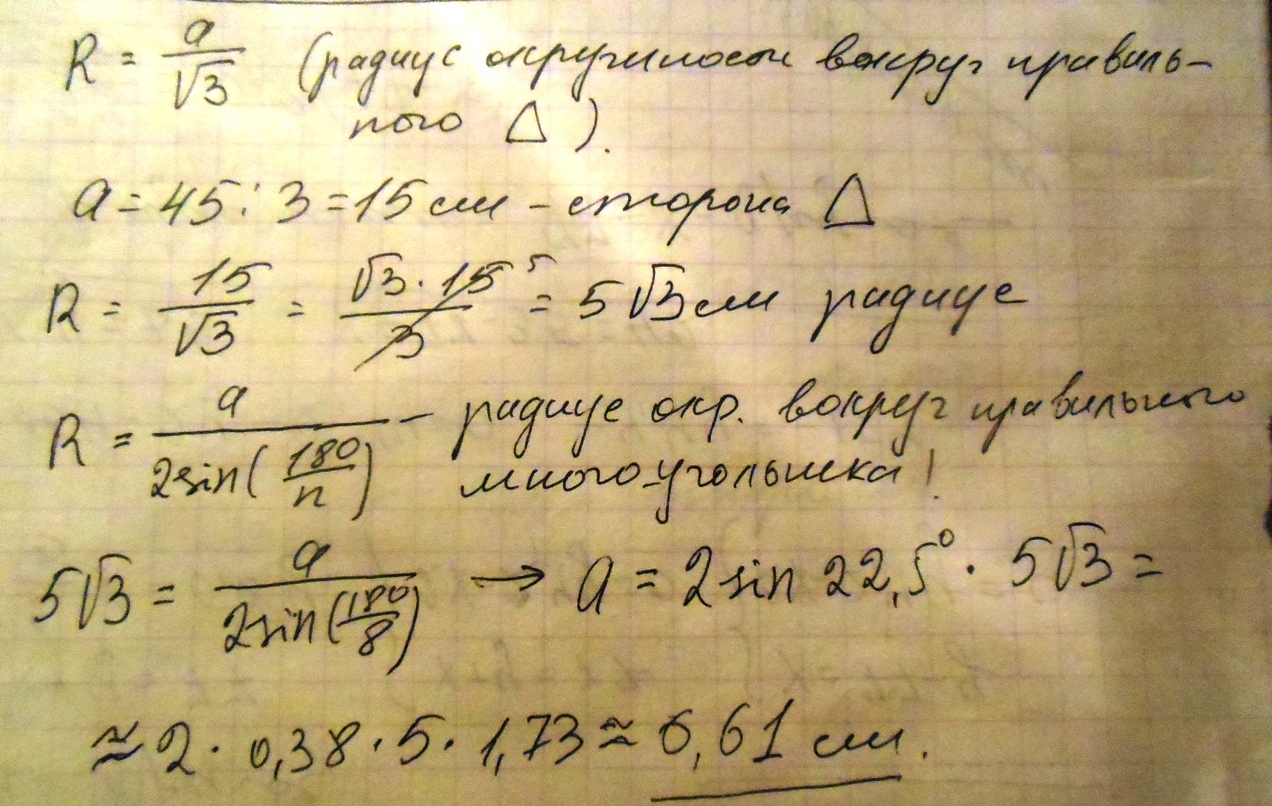 R = a/√3 (радиус окружности вокруг правиль-
ного △).
a = 45 : 3 = 15 см – сторона △
R = 15/√3 = √3 · 15 5/3 = 5√3 см радиус
R = a/2sin(180/n) – радиус окр. вокруг правильного
многоугольника!
5√3 = a/2sin(180/8) → a = 2sin 22,5° · 5√3 =
≈ 2 · 0,38 · 5 · 1,73 ≈ 6,61 см.